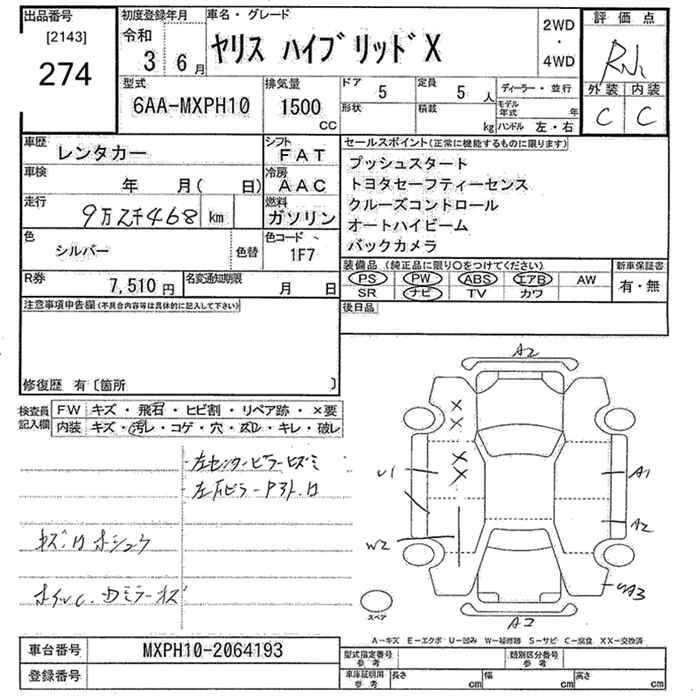 出品番号 初度登録年月 車名・グレード 2WD 評価点
[2143] 令和 ・
274 3年 6月 ヤリス ハイブリッドX 4WD
外装 内装
C C
型式 排気量 ドア 定員 ディーラー・並行
6AA-MXPH10 1500 CC 5 5人
形状 積載 kg モデル年式 年
ハンドル 左・右
車歴 レンタカー シフト FAT
車検 年 月( 日) 冷房 AAC
走行 9万2千468 km 燃料 ガソリン
色 シルバー 色替 色コード 1F7
R券 7,510円 名変通知期限 月 日
セールスポイント(正常に機能するものに限ります)
プッシュスタート
トヨタセーフティーセンス
クルーズコントロール
オートハイビーム
バックカメラ
装備品(純正品に限り○をつけてください) 新車保証書
PS PW ABS エアB AW 有・無
SR ナビ TV カワ
後日品
注意事項申告欄(不具合内容等は具体的に記入して下さい)
修復歴 有〔箇所 〕
検査員記入欄 FW キズ・飛石・ヒビ割・リペア跡・×要
内装 キズ・汚レ・コゲ・穴・ズレ・キレ・破レ
左センターピラーヒズミ
A2
U1 A1
A2
W2
A2
スペア
A-キズ E-エクボ U-凹み W-補修跡 S-サビ C-腐食 XX-交換済
車台番号 MXPH10-2064193
登録番号
型式指定番号 参考 類別区分番号 参考
車庫証明用 参考 長さ cm 幅 cm 高さ cm